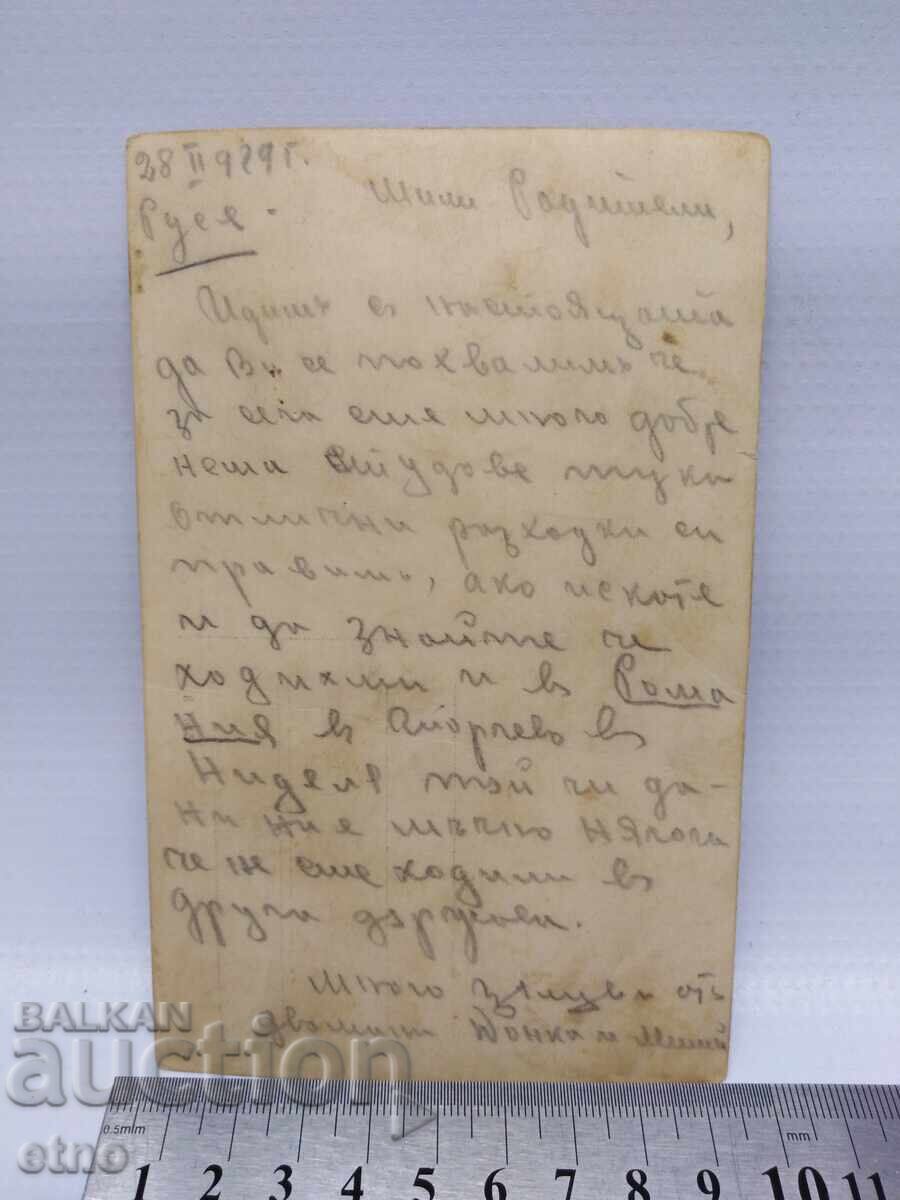 28 II 929 г.
Русе.
Мили Родители,
Идимъ съ настоящата
да Ви се похвалимъ че
за сега сме много добре
неша тука
отлични разходки си
правимъ, ако искате
и да знайте че
ходихми и въ Рома
ния въ Гюргево въ
Ниделя тъй чи да
ни ни е мъчно някога
че не сме ходили въ
други държави.
Много целувки отъ
двамата Донка и
BALKAN
auction
etno
0.5mm
mm
1 2 3 4 5 6 7 8 9 10 11